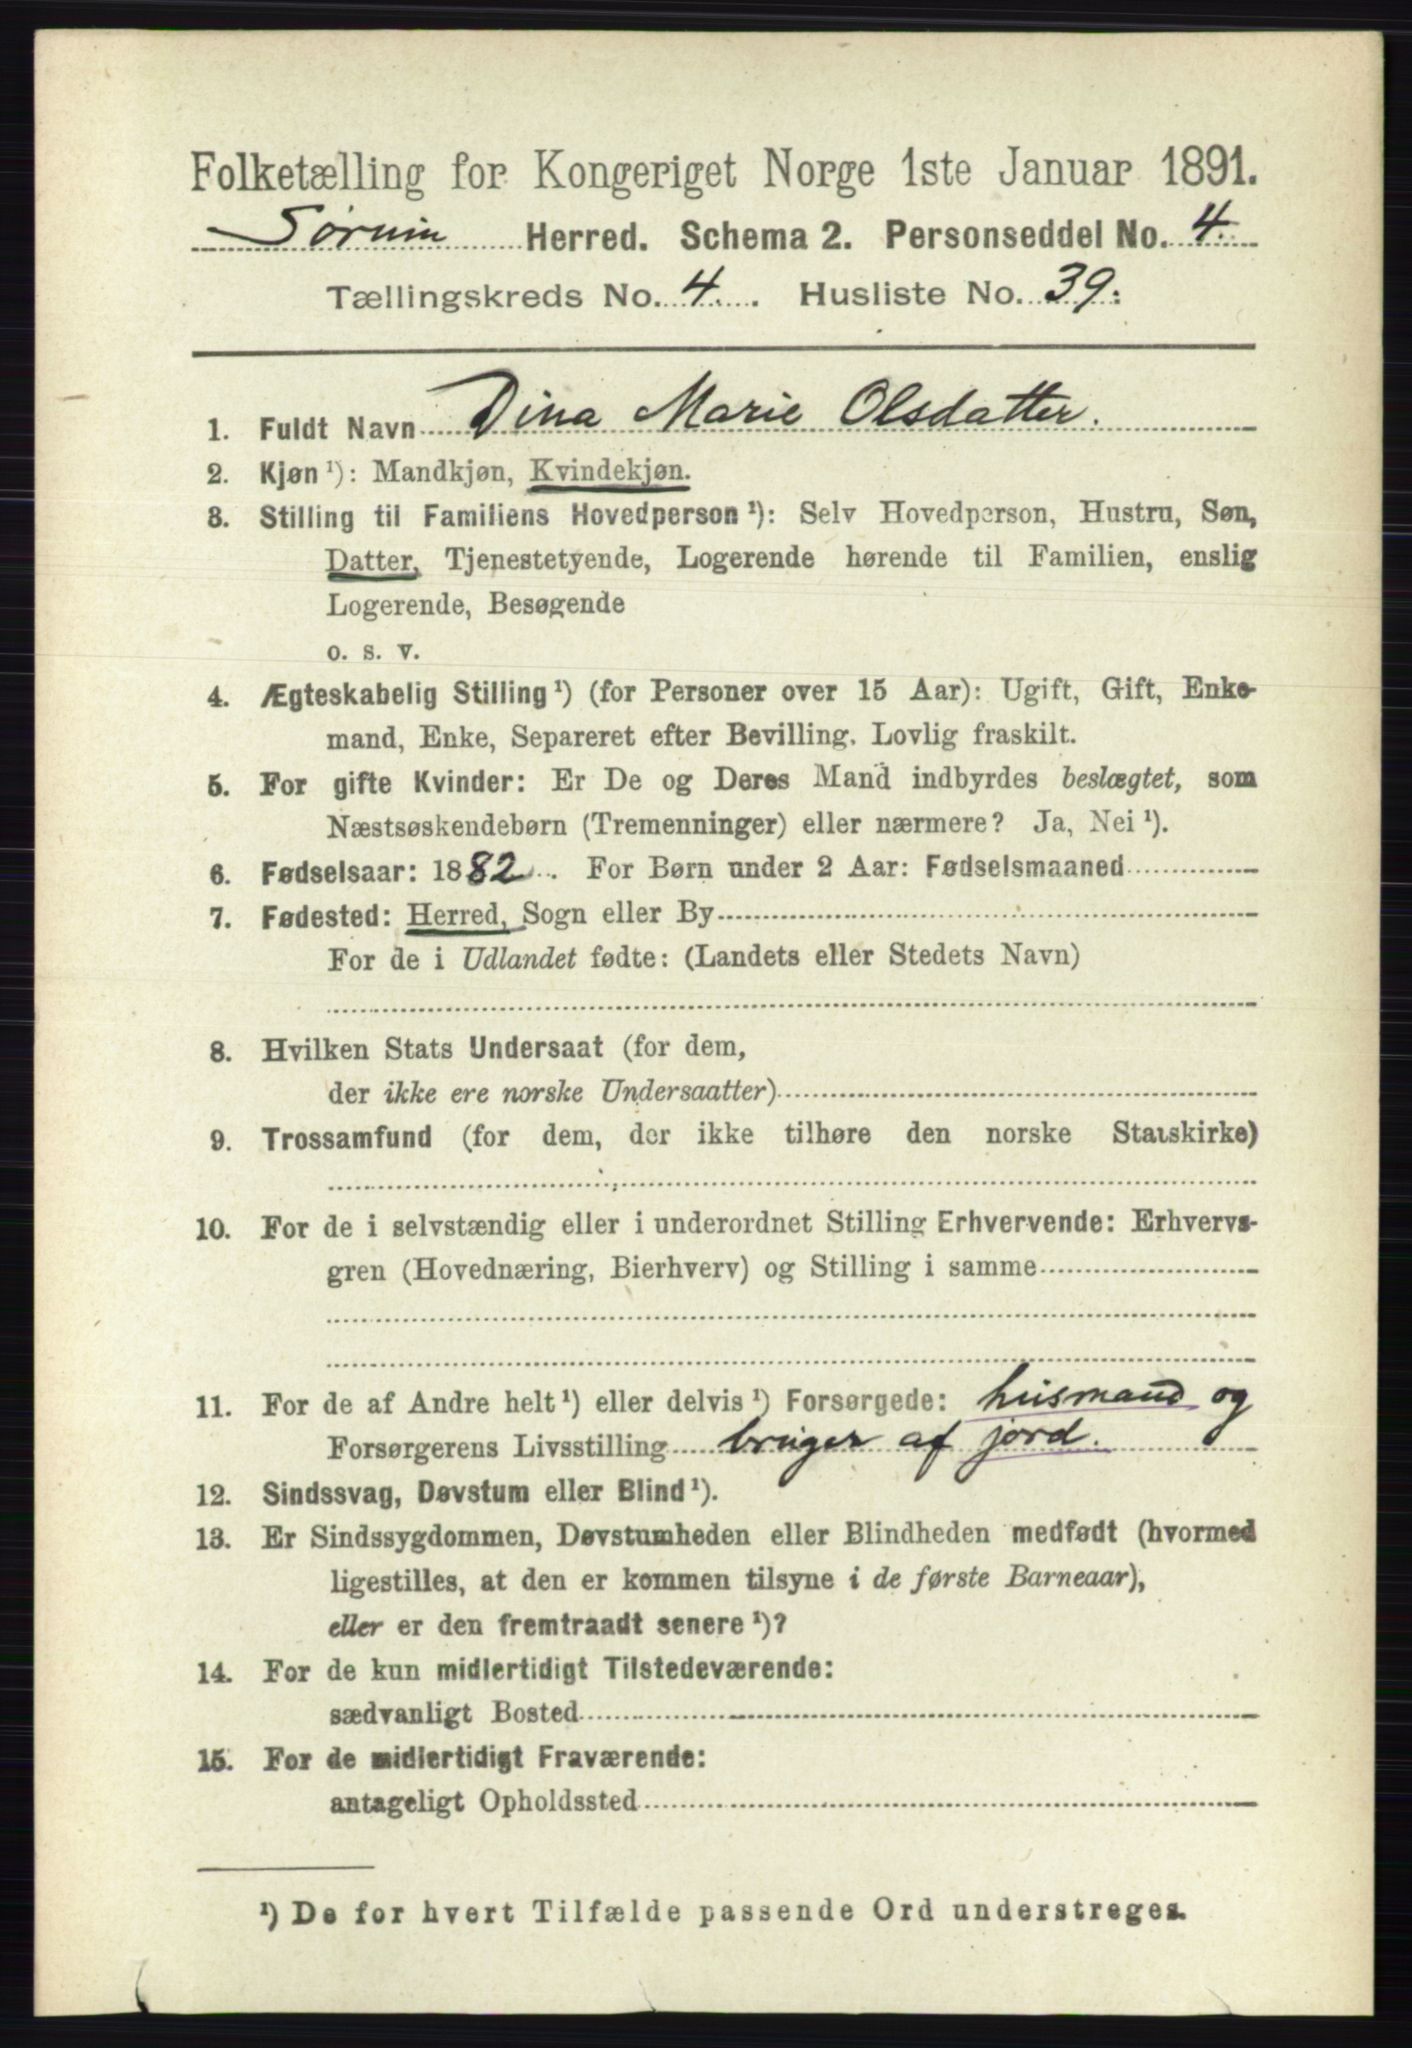 Folketælling for Kongeriget Norge 1ste Januar 1891.
Sørum Herred. Schema 2. Personseddel No. 4.
Tællingskreds No. 4. Husliste No. 39.
1. Fuldt Navn Dina Marie Olsdatter.
2. Kjøn ¹): Mandkjøn, Kvindekjøn.
3. Stilling til Familiens Hovedperson ¹): Selv Hovedperson, Hustru, Søn,
Datter, Tjenestetyende, Logerende hørende til Familien, enslig
Logerende, Besøgende
o. s. v.
4. Ægteskabelig Stilling ¹) (for Personer over 15 Aar): Ugift, Gift, Enke-
mand, Enke, Separeret efter Bevilling. Lovlig fraskilt.
5. For gifte Kvinder: Er De og Deres Mand indbyrdes beslægtet, som
Næstsøskendebørn (Tremenninger) eller nærmere? Ja, Nei ¹).
6. Fødselsaar: 1882. For Børn under 2 Aar: Fødselsmaaned
7. Fødested: Herred, Sogn eller By
For de i Udlandet fødte: (Landets eller Stedets Navn)
8. Hvilken Stats Undersaat (for dem,
der ikke ere norske Undersaatter)
9. Trossamfund (for dem, der ikke tilhøre den norske Statskirke)
10. For de i selvstændig eller i underordnet Stilling Erhvervende: Erhvervs-
gren (Hovednæring, Bierhverv) og Stilling i samme
11. For de af Andre helt ¹) eller delvis ¹) Forsørgede: husmand og
Forsørgerens Livsstilling bruger af jord.
12. Sindssvag, Døvstum eller Blind ¹).
13. Er Sindssygdommen, Døvstumheden eller Blindheden medfødt (hvormed
ligestilles, at den er kommen tilsyne i de første Barneaar),
eller er den fremtraadt senere ¹)?
14. For de kun midlertidigt Tilstedeværende:
sædvanligt Bosted
15. For de midlertidigt Fraværende:
antageligt Opholdssted
¹) De for hvert Tilfælde passende Ord understreges.